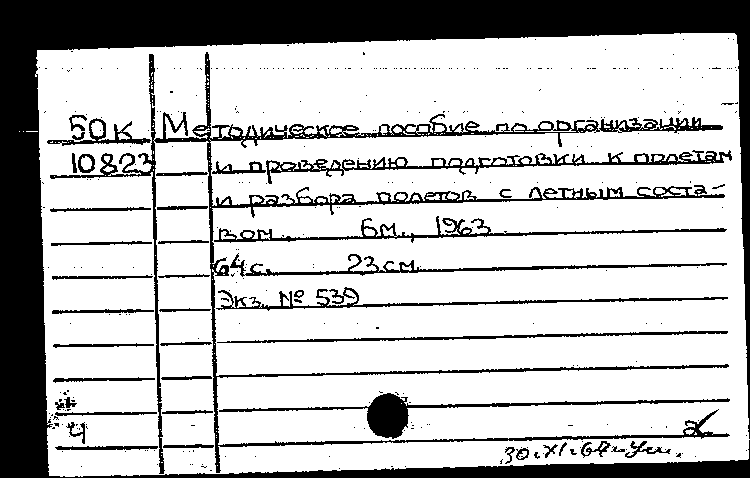 50к Методическое пособие по организации
10823 и проведению подготовки к полетам
и разбора полетов с летным соста-
вом. Бм., 1963
64 с. 23 см.
Экз. № 539
Ч
30.XI.64